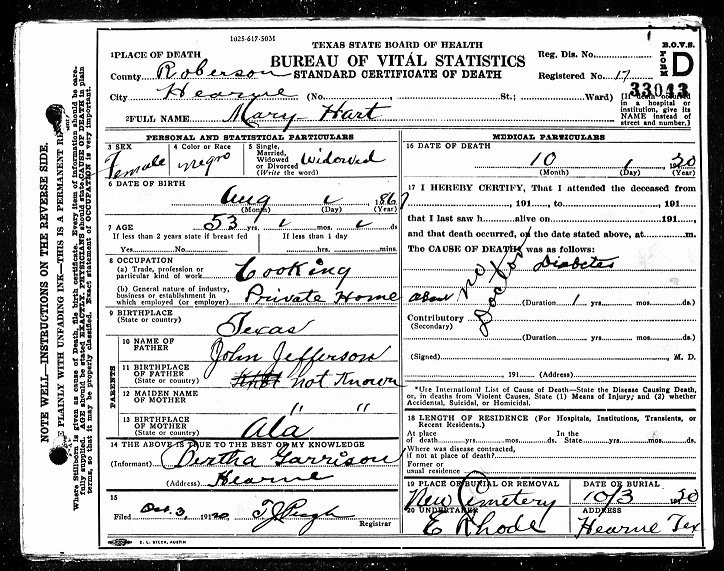 1025-617-50M
TEXAS STATE BOARD OF HEALTH
BUREAU OF VITAL STATISTICS
STANDARD CERTIFICATE OF DEATH
1PLACE OF DEATH
County Roberson
City Hearne (No. St.; Ward)
2FULL NAME Mary Hart
Reg. Dis. No.
Registered No. 17
B.O.V.S.
FORM
D
33043
[If death occurred in a hospital or institution, give its NAME instead of street and number.]
PERSONAL AND STATISTICAL PARTICULARS
3 SEX
Female
4 Color or Race
negro
5 Single, Married, Widowed or Divorced (Write the word)
Widowed
6 DATE OF BIRTH
Aug 186?
(Month) (Day) (Year)
7 AGE
53 yrs. ds
If less than 2 years state if breast fed
Yes No
If less than 1 day
hrs. mins.
8 OCCUPATION
(a) Trade, profession or particular kind of work Cooking
(b) General nature of industry, business or establishment in which employed (or employer) Private Home
9 BIRTHPLACE
(State or country) Texas
PARENTS
10 NAME OF FATHER John Jefferson
11 BIRTHPLACE OF FATHER (State or country) not Known
12 MAIDEN NAME OF MOTHER " "
13 BIRTHPLACE OF MOTHER (State or country) Ala
14 THE ABOVE IS TRUE TO THE BEST OF MY KNOWLEDGE
(Informant) Bertha Garrison
(Address) Hearne
15
Filed Oct. 3, 1920
Registrar
MEDICAL PARTICULARS
16 DATE OF DEATH
10 1 20
(Month) (Day) (Year)
17 I HEREBY CERTIFY, That I attended the deceased from
, 191 , to , 191 ,
that I last saw h alive on 191 ,
and that death occurred, on the date stated above, at m.
The CAUSE OF DEATH was as follows:
Diabetes
no Doctor
about (Duration 1 yrs. mos. ds.)
Contributory
(Secondary)
(Duration yrs. mos. ds.)
(Signed) , M. D.
191 . (Address)
*Use International List of Cause of Death—State the Disease Causing Death, or, in deaths from Violent Causes, State (1) Means of Injury; and (2) whether Accidental, Suicidal, or Homicidal.
18 LENGTH OF RESIDENCE (For Hospitals, Institutions, Transients, or Recent Residents.)
At place of death yrs. mos. ds. In the State yrs. mos. ds.
Where was disease contracted, if not at place of death?
Former or usual residence
19 PLACE OF BURIAL OR REMOVAL
New Cemetery
DATE OF BURIAL
10/3 20
20 UNDERTAKER
E Rhode
ADDRESS
Hearne Tex
E. L. STECK, AUSTIN
NOTE WELL—INSTRUCTIONS ON THE REVERSE SIDE.
PLAINLY WITH UNFADING INK—THIS IS A PERMANENT
Where Stillborn is given as cause of Death, file birth certificate. Every item of information should be carefully supplied. AGE should be stated EXACTLY. PHYSICIANS should state CAUSE OF DEATH in plain terms, so that it may be properly classified. Exact statement of OCCUPATION is very important.